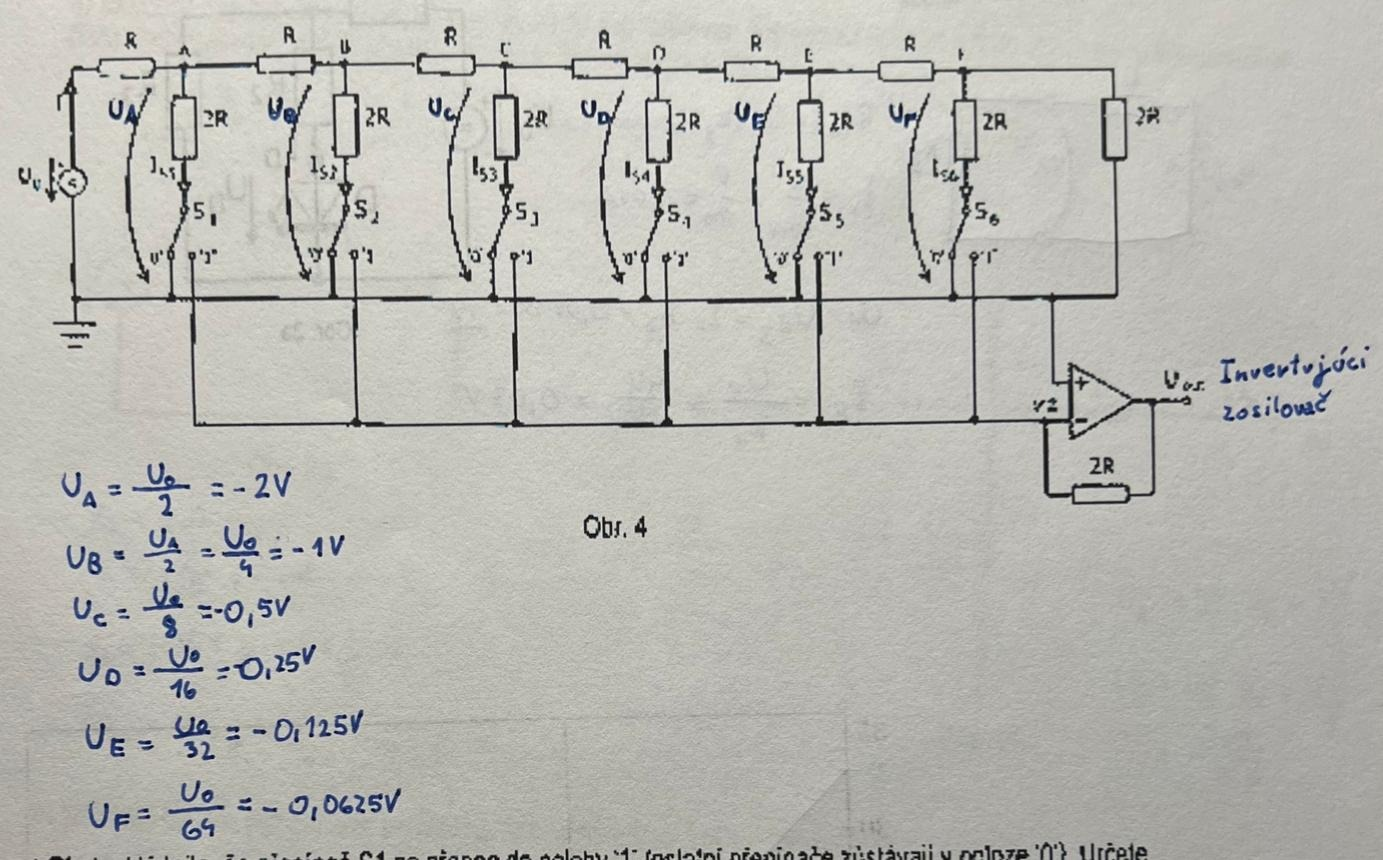 R R R R R R
A B C D E F
U_A 2R U_B 2R U_C 2R U_D 2R U_E 2R U_F 2R 2R
I_S1 I_S2 I_S3 I_S4 I_S5 I_S6
S1 S2 S3 S4 S5 S6
'0' '1' '0' '1' '0' '1' '0' '1' '0' '1' '0' '1'
+
-
Invertujúci
zosilovač
2R
U_A = U_0/2 = -2V
U_B = U_A/2 = U_0/4 = -1V
U_C = U_0/8 = -0,5V
U_D = U_0/16 = -0,25V
U_E = U_0/32 = -0,125V
U_F = U_0/64 = -0,0625V
Obr. 4
do polohy '1' (ostatní přepínače zůstávají v poloze '0'). Určete